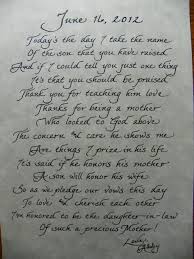 June 16, 2012
Today's the day I take the name
Of the son that you have raised
And if I could tell you just one thing
It's that you should be praised
Thank you for teaching him love
Thanks for being a mother
Who looked to God above
The concern & care he shows me
Are things I prize in his life
It's said if he honors his mother
A son will honor his wife
So as we pledge our vows this day
To love & cherish each other
I'm honored to be the daughter-in-law
Of such a precious Mother!
Love,
Abby